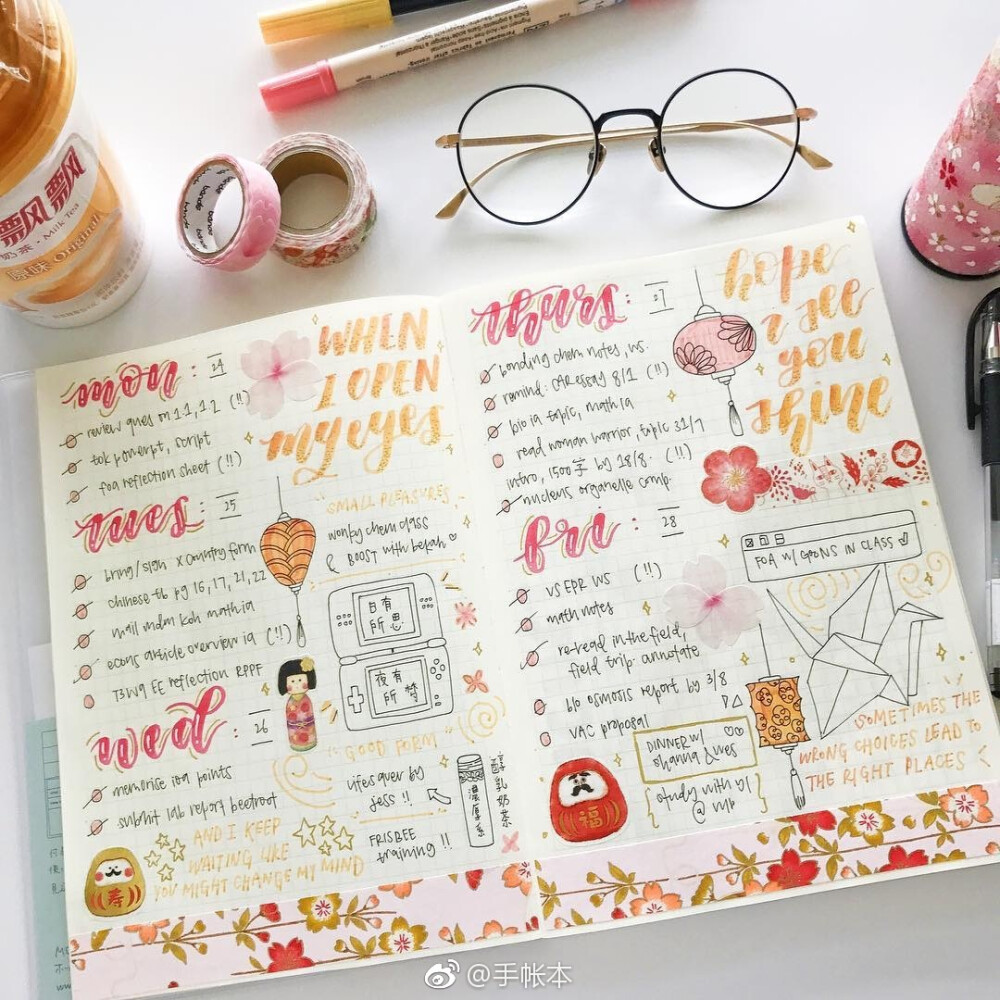 飘风飘
奶茶·Milk Tea
原味 Original
bande
mon: 24
review ques on 1.1, 1.2 (!!)
tok powerpt, script
foa reflection sheet (!!)
WHEN
I OPEN
my eyes
tues: 25
bring/sign x country form
chinese tb pg 16, 17, 21, 22
mail mdm koh math ia
econs article overview ia (!!)
T3W9 EE reflection RPPF
SMALL PLEASURES
wonky chem class
& BOOST with bekah ♡
日有
所思
夜有
所梦
wed: 26
memorise ioa points
submit lab report beetroot
AND I KEEP
WAITING LIKE
YOU MIGHT CHANGE MY MIND
寿
"GOOD FORM"
lifesaver by
jess !!
FRISBEE
training !!
醇乳奶茶
thurs: 27
bonding chem notes, ws.
remind: CAR essay 8/1 (!!)
bio ia topic, math ia
read woman warrior, topic 31/7
intro, 1500字 by 18/8. (!!)
nucleus organelle comp.
hope
i see
you
shine
fri: 28
VS EPR WS (!!)
math notes
re-read in the field,
field trip: annotate
bio osmosis report by 3/8
VAC proposal
FOA W/ GRONS IN CLASS
DINNER W/ ♡♡
ohanna & wes
study with yi
@ mp
福
SOMETIMES THE
WRONG CHOICES LEAD TO
THE RIGHT PLACES
@手帐本